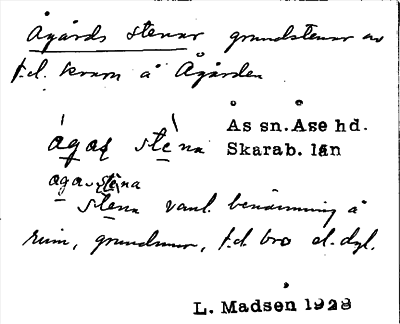 Ågårds stenar grundstenar av
f.d. kvarn å Ågården
ágas stè̱na
Ås sn. Åse hd.
Skarab. län
agas stena
stena vanl. benämning å
ruin, grundmur, f.d. bro el. dyl.
L. Madsén 1928